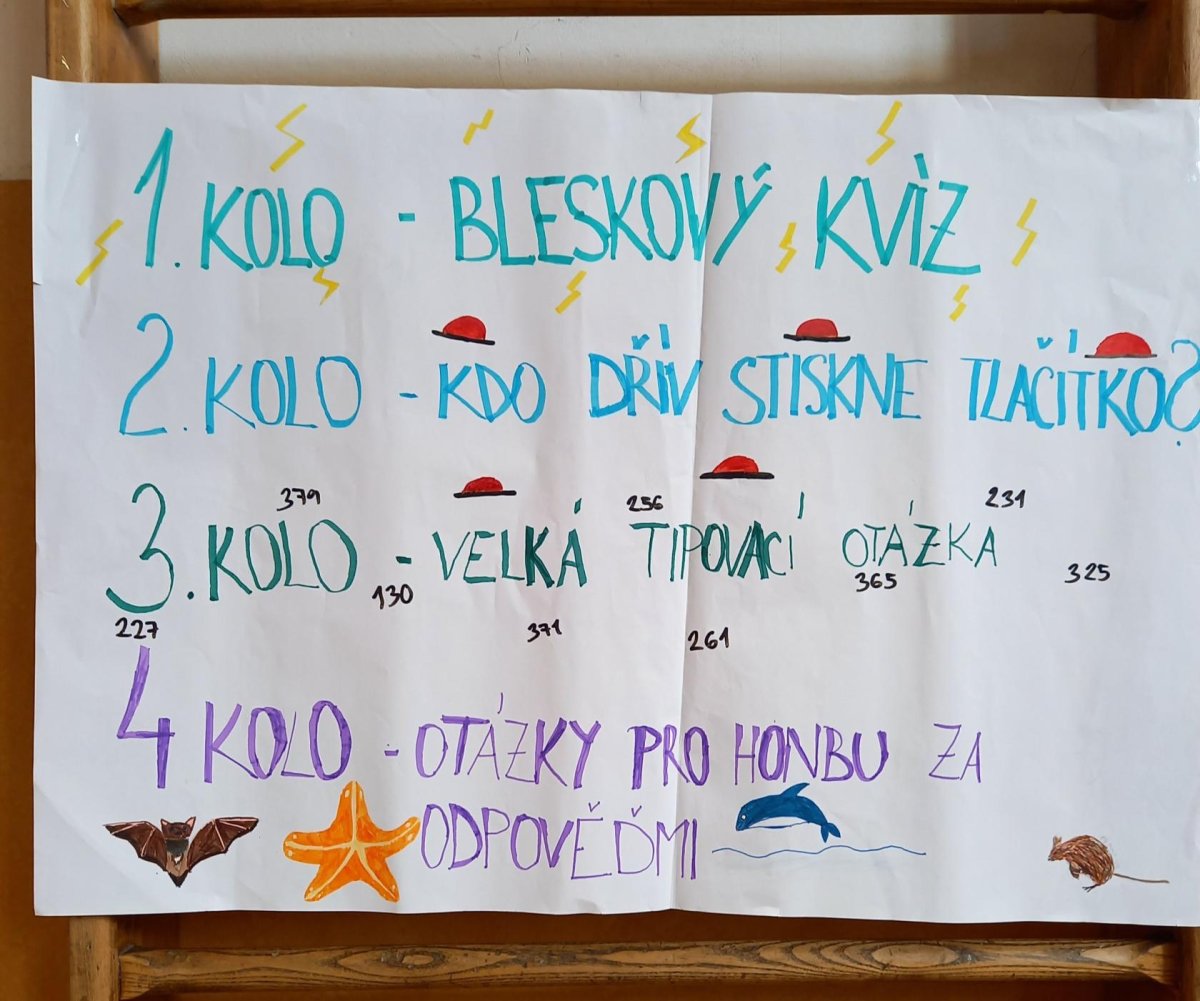 1. KOLO - BLESKOVÝ KVÌZ
2. KOLO - KDO DŘÍV STISKNE TLAČÍTKO?
379 256 231
3. KOLO - VELKÁ TIPOVACÍ OTÁZKA
130 365 325
227 371 261
4 KOLO - OTÁZKY PRO HONBU ZA
ODPOVĚĎMI